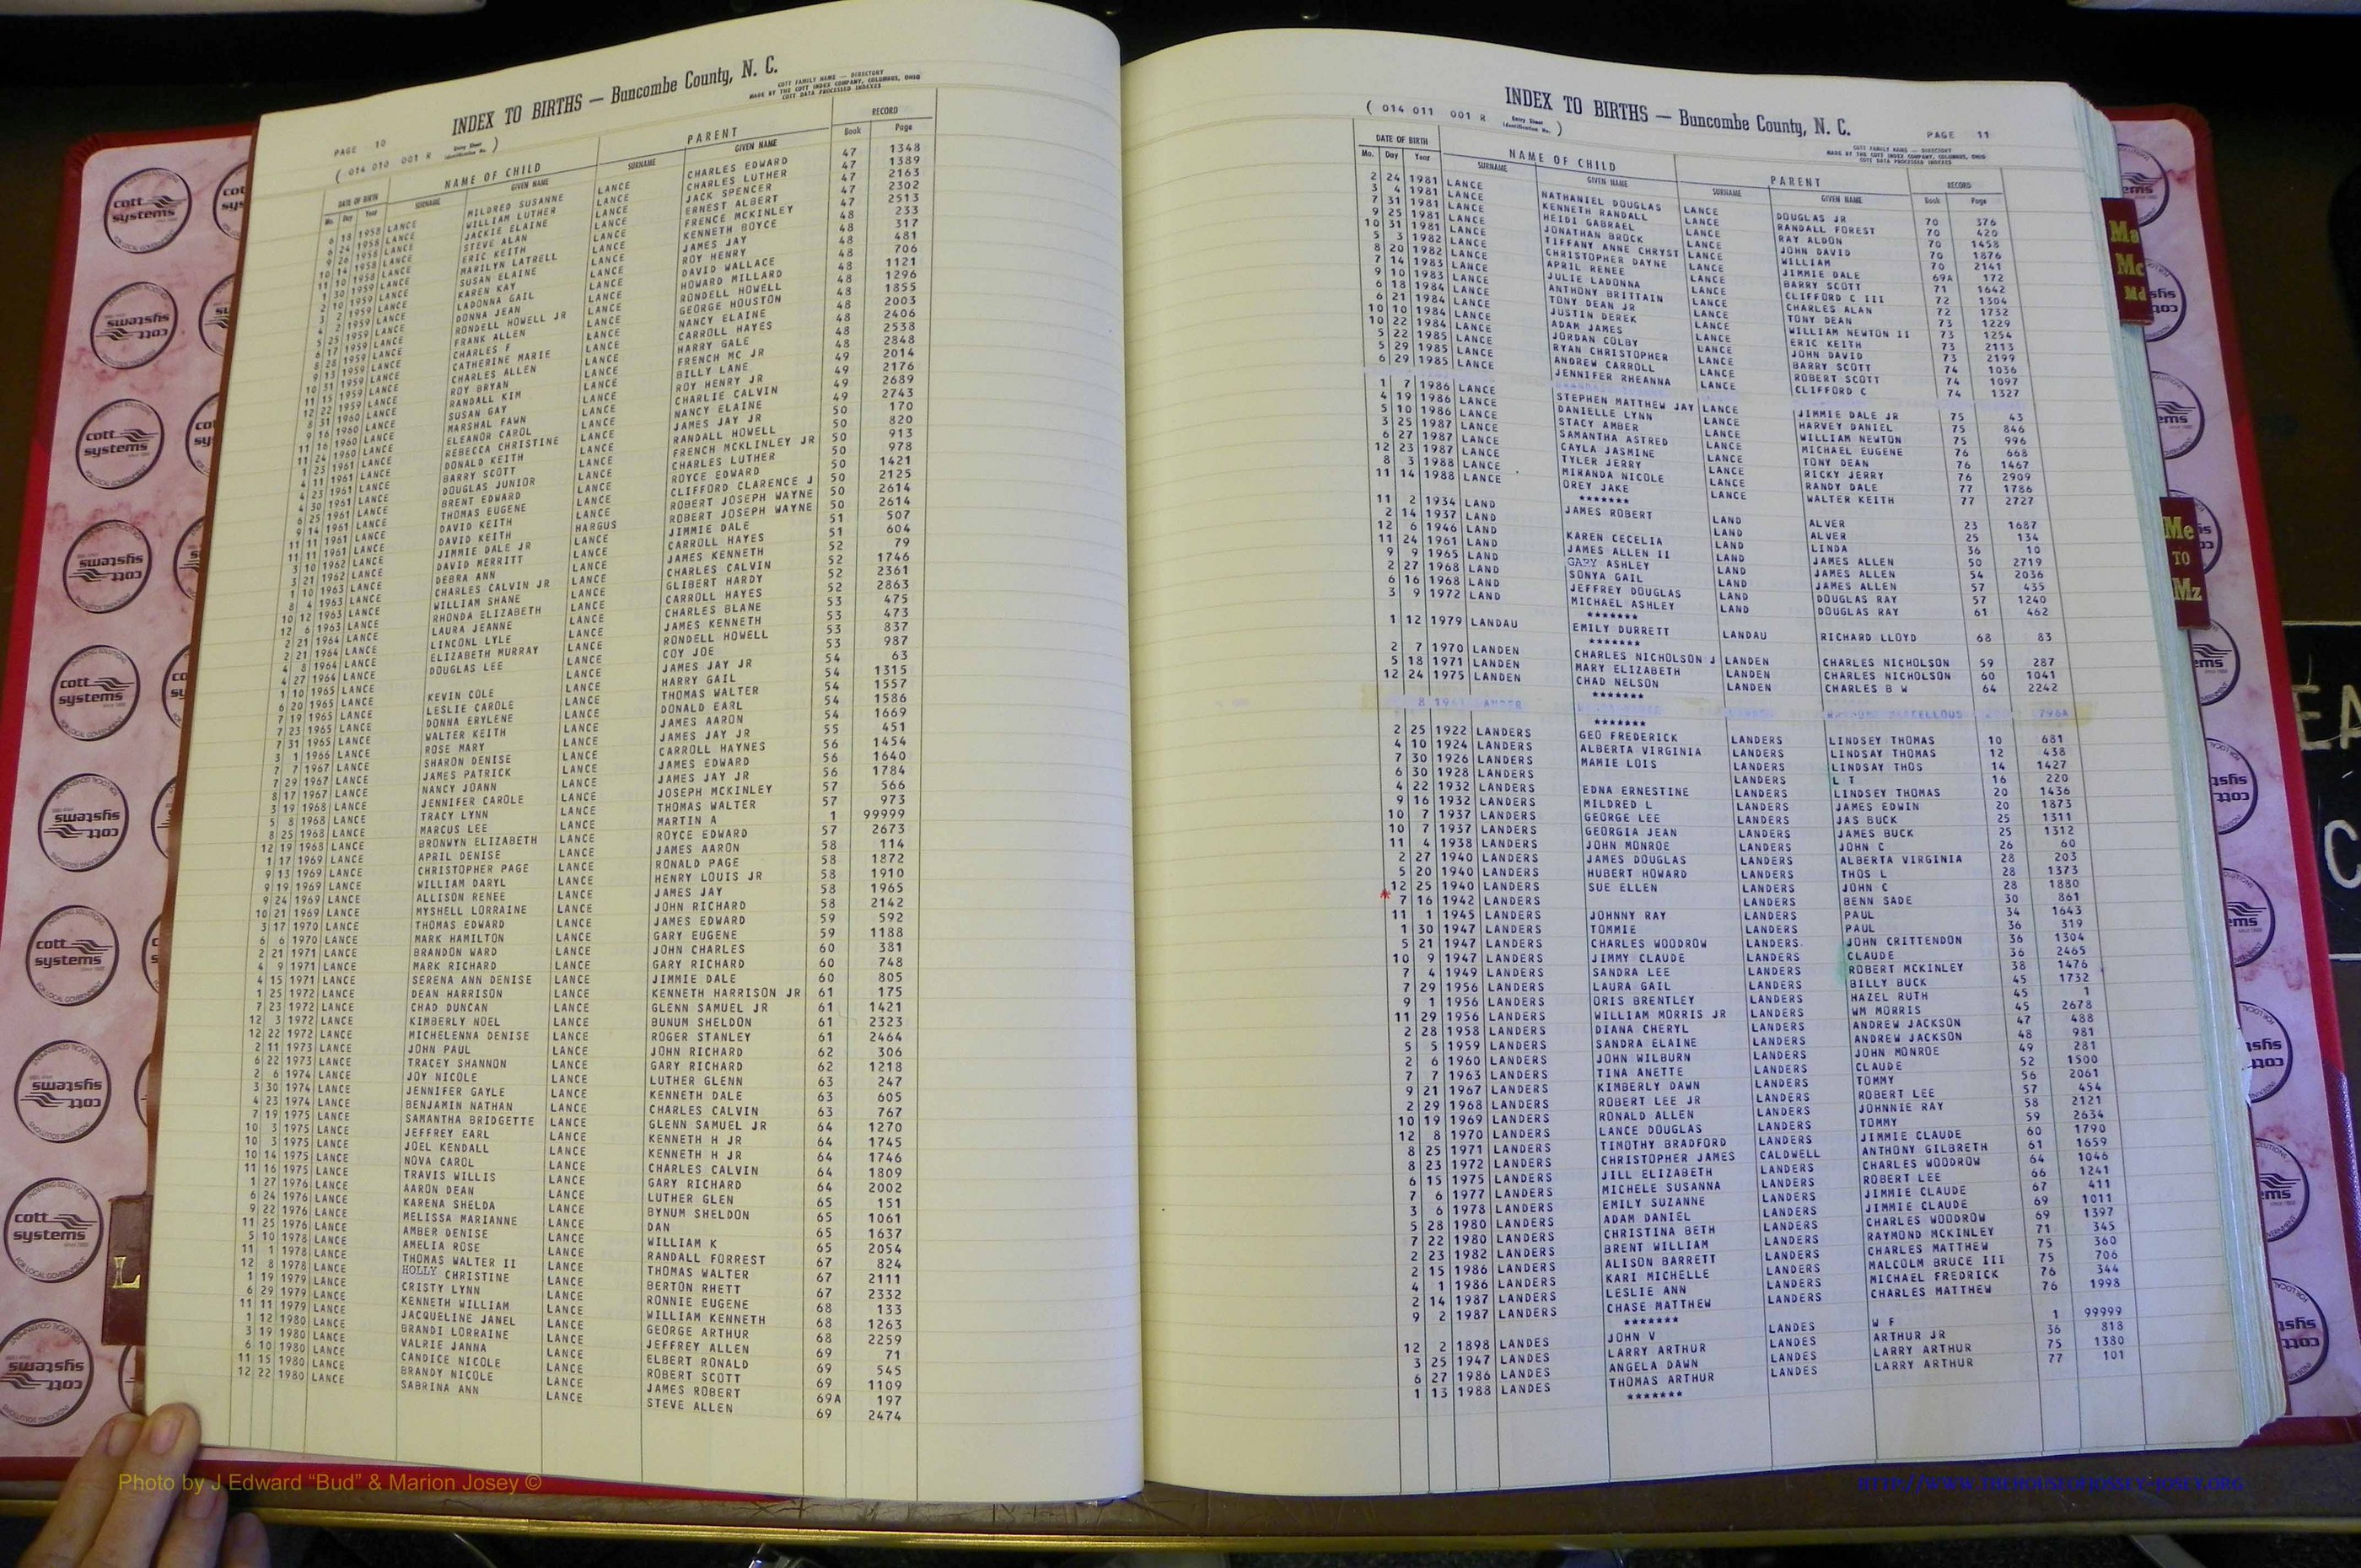 INDEX TO BIRTHS — Buncombe County, N. C.
COTT FAMILY NAME — DIRECTORY
MADE BY THE COTT INDEX COMPANY, COLUMBUS, OHIO
COTT DATA PROCESSED INDEXES
PAGE 10
( 014 010 001 R Entry Sheet Identification No. )
DATE OF BIRTH NAME OF CHILD PARENT RECORD
Mo. Day Year SURNAME GIVEN NAME SURNAME GIVEN NAME Book Page
6 18 1958 LANCE MILDRED SUSANNE LANCE CHARLES EDWARD 47 1348
6 24 1958 LANCE WILLIAM LUTHER LANCE CHARLES LUTHER 47 1389
9 26 1958 LANCE JACKIE ELAINE LANCE JACK SPENCER 47 2163
10 14 1958 LANCE STEVE ALAN LANCE ERNEST ALBERT 47 2302
11 10 1958 LANCE ERIC KEITH LANCE FRENCE MCKINLEY 47 2513
1 30 1959 LANCE MARILYN LATRELL LANCE KENNETH BOYCE 48 233
2 19 1959 LANCE SUSAN ELAINE LANCE JAMES JAY 48 317
3 2 1959 LANCE KAREN KAY LANCE ROY HENRY 48 481
4 2 1959 LANCE LADONNA GAIL LANCE DAVID WALLACE 48 706
5 25 1959 LANCE DONNA JEAN LANCE HOWARD MILLARD 48 1121
6 17 1959 LANCE RONDELL HOWELL JR LANCE RONDELL HOWELL 48 1296
8 28 1959 LANCE FRANK ALLEN LANCE GEORGE HOUSTON 48 1855
9 13 1959 LANCE CHARLES F LANCE NANCY ELAINE 48 2003
10 31 1959 LANCE CATHERINE MARIE LANCE CARROLL HAYES 48 2406
11 15 1959 LANCE CHARLES ALLEN LANCE HARRY GALE 48 2538
12 22 1959 LANCE ROY BRYAN LANCE FRENCH MC JR 48 2848
8 31 1960 LANCE RANDALL KIM LANCE BILLY LANE 49 2014
9 16 1960 LANCE SUSAN GAY LANCE ROY HENRY JR 49 2176
11 16 1960 LANCE MARSHAL FAWN LANCE CHARLIE CALVIN 49 2689
11 24 1960 LANCE ELEANOR CAROL LANCE NANCY ELAINE 49 2743
1 23 1961 LANCE REBECCA CHRISTINE LANCE JAMES JAY JR 50 170
4 11 1961 LANCE DONALD KEITH LANCE RANDALL HOWELL 50 820
4 23 1961 LANCE BARRY SCOTT LANCE FRENCH MCKLINLEY JR 50 913
4 30 1961 LANCE DOUGLAS JUNIOR LANCE CHARLES LUTHER 50 978
6 25 1961 LANCE BRENT EDWARD LANCE ROYCE EDWARD 50 1421
9 14 1961 LANCE THOMAS EUGENE LANCE CLIFFORD CLARENCE J 50 2125
11 11 1961 LANCE DAVID KEITH LANCE ROBERT JOSEPH WAYNE 50 2614
11 11 1961 LANCE DAVID KEITH HARGUS ROBERT JOSEPH WAYNE 50 2614
3 10 1962 LANCE JIMMIE DALE JR LANCE JIMMIE DALE 51 507
3 21 1962 LANCE DAVID MERRITT LANCE CARROLL HAYES 51 604
1 10 1963 LANCE DEBRA ANN LANCE JAMES KENNETH 52 79
8 4 1963 LANCE CHARLES CALVIN JR LANCE CHARLES CALVIN 52 1746
10 12 1963 LANCE WILLIAM SHANE LANCE GLIBERT HARDY 52 2361
12 6 1963 LANCE RHONDA ELIZABETH LANCE CARROLL HAYES 52 2863
2 21 1964 LANCE LAURA JEANNE LANCE CHARLES BLANE 53 475
2 21 1964 LANCE LINCONL LYLE LANCE JAMES KENNETH 53 473
4 8 1964 LANCE ELIZABETH MURRAY LANCE RONDELL HOWELL 53 837
4 27 1964 LANCE DOUGLAS LEE LANCE COY JOE 53 987
1 10 1965 LANCE LANCE JAMES JAY JR 54 63
6 20 1965 LANCE KEVIN COLE LANCE HARRY GAIL 54 1315
7 19 1965 LANCE LESLIE CAROLE LANCE THOMAS WALTER 54 1557
7 23 1965 LANCE DONNA ERYLENE LANCE DONALD EARL 54 1586
7 31 1965 LANCE WALTER KEITH LANCE JAMES AARON 54 1669
3 1 1966 LANCE ROSE MARY LANCE JAMES JAY JR 55 451
7 7 1967 LANCE SHARON DENISE LANCE CARROLL HAYNES 56 1454
7 29 1967 LANCE JAMES PATRICK LANCE JAMES EDWARD 56 1640
8 17 1967 LANCE NANCY JOANN LANCE JAMES JAY JR 56 1784
3 19 1968 LANCE JENNIFER CAROLE LANCE JOSEPH MCKINLEY 57 566
5 8 1968 LANCE TRACY LYNN LANCE THOMAS WALTER 57 973
8 25 1968 LANCE MARCUS LEE LANCE MARTIN A 1 99999
12 19 1968 LANCE BRONWYN ELIZABETH LANCE ROYCE EDWARD 57 2673
1 17 1969 LANCE APRIL DENISE LANCE JAMES AARON 58 114
9 13 1969 LANCE CHRISTOPHER PAGE LANCE RONALD PAGE 58 1872
9 19 1969 LANCE WILLIAM DARYL LANCE HENRY LOUIS JR 58 1910
9 24 1969 LANCE ALLISON RENEE LANCE JAMES JAY 58 1965
10 21 1969 LANCE MYSHELL LORRAINE LANCE JOHN RICHARD 58 2142
3 17 1970 LANCE THOMAS EDWARD LANCE JAMES EDWARD 59 592
6 6 1970 LANCE MARK HAMILTON LANCE GARY EUGENE 59 1188
2 21 1971 LANCE BRANDON WARD LANCE JOHN CHARLES 60 381
4 9 1971 LANCE MARK RICHARD LANCE GARY RICHARD 60 748
4 15 1971 LANCE SERENA ANN DENISE LANCE JIMMIE DALE 60 805
1 25 1972 LANCE DEAN HARRISON LANCE KENNETH HARRISON JR 61 175
7 23 1972 LANCE CHAD DUNCAN LANCE GLENN SAMUEL JR 61 1421
12 3 1972 LANCE KIMBERLY NOEL LANCE BUNUM SHELDON 61 2323
12 22 1972 LANCE MICHELENNA DENISE LANCE ROGER STANLEY 61 2464
2 11 1973 LANCE JOHN PAUL LANCE JOHN RICHARD 62 306
6 22 1973 LANCE TRACEY SHANNON LANCE GARY RICHARD 62 1218
2 6 1974 LANCE JOY NICOLE LANCE LUTHER GLENN 63 247
3 30 1974 LANCE JENNIFER GAYLE LANCE KENNETH DALE 63 605
4 23 1974 LANCE BENJAMIN NATHAN LANCE CHARLES CALVIN 63 767
7 19 1975 LANCE SAMANTHA BRIDGETTE LANCE GLENN SAMUEL JR 64 1270
10 3 1975 LANCE JEFFREY EARL LANCE KENNETH H JR 64 1745
10 3 1975 LANCE JOEL KENDALL LANCE KENNETH H JR 64 1746
10 14 1975 LANCE NOVA CAROL LANCE CHARLES CALVIN 64 1809
11 16 1975 LANCE TRAVIS WILLIS LANCE GARY RICHARD 64 2002
1 27 1976 LANCE AARON DEAN LANCE LUTHER GLEN 65 151
6 24 1976 LANCE KARENA SHELDA LANCE BYNUM SHELDON 65 1061
9 22 1976 LANCE MELISSA MARIANNE LANCE DAN 65 1637
11 25 1976 LANCE AMBER DENISE LANCE WILLIAM K 65 2054
5 10 1978 LANCE AMELIA ROSE LANCE RANDALL FORREST 67 824
11 1 1978 LANCE THOMAS WALTER II LANCE THOMAS WALTER 67 2111
12 8 1978 LANCE HOLLY CHRISTINE LANCE BERTON RHETT 67 2332
1 19 1979 LANCE CRISTY LYNN LANCE RONNIE EUGENE 68 133
6 29 1979 LANCE KENNETH WILLIAM LANCE WILLIAM KENNETH 68 1263
11 11 1979 LANCE JACQUELINE JANEL LANCE GEORGE ARTHUR 68 2259
1 12 1980 LANCE BRANDI LORRAINE LANCE JEFFREY ALLEN 69 71
3 19 1980 LANCE VALRIE JANNA LANCE ELBERT RONALD 69 545
6 10 1980 LANCE CANDICE NICOLE LANCE ROBERT SCOTT 69 1109
11 15 1980 LANCE BRANDY NICOLE LANCE JAMES ROBERT 69A 197
12 22 1980 LANCE SABRINA ANN LANCE STEVE ALLEN 69 2474
INDEX TO BIRTHS — Buncombe County, N. C.
( 014 011 001 R Entry Sheet Identification No. )
PAGE 11
COTT FAMILY NAME — DIRECTORY
MADE BY THE COTT INDEX COMPANY, COLUMBUS, OHIO
COTT DATA PROCESSED INDEXES
DATE OF BIRTH NAME OF CHILD PARENT RECORD
Mo. Day Year SURNAME GIVEN NAME SURNAME GIVEN NAME Book Page
2 24 1981 LANCE NATHANIEL DOUGLAS LANCE DOUGLAS JR 70 376
3 4 1981 LANCE KENNETH RANDALL LANCE RANDALL FOREST 70 420
7 31 1981 LANCE HEIDI GABRAEL LANCE RAY ALDON 70 1458
9 25 1981 LANCE JONATHAN BROCK LANCE JOHN DAVID 70 1876
10 31 1981 LANCE TIFFANY ANNE CHRYST LANCE WILLIAM 70 2141
5 3 1982 LANCE CHRISTOPHER DAYNE LANCE JIMMIE DALE 69A 172
8 20 1982 LANCE APRIL RENEE LANCE BARRY SCOTT 71 1642
7 14 1983 LANCE JULIE LADONNA LANCE CLIFFORD C III 72 1304
9 10 1983 LANCE ANTHONY BRITTAIN LANCE CHARLES ALAN 72 1732
6 18 1984 LANCE TONY DEAN JR LANCE TONY DEAN 73 1229
6 21 1984 LANCE JUSTIN DEREK LANCE WILLIAM NEWTON II 73 1254
10 10 1984 LANCE ADAM JAMES LANCE ERIC KEITH 73 2113
10 22 1984 LANCE JORDAN COLBY LANCE JOHN DAVID 73 2199
5 22 1985 LANCE RYAN CHRISTOPHER LANCE BARRY SCOTT 74 1036
5 29 1985 LANCE ANDREW CARROLL LANCE ROBERT SCOTT 74 1097
6 29 1985 LANCE JENNIFER RHEANNA LANCE CLIFFORD C 74 1327
1 7 1986 LANCE STEPHEN MATTHEW JAY LANCE JIMMIE DALE JR 75 43
4 19 1986 LANCE DANIELLE LYNN LANCE HARVEY DANIEL 75 846
5 10 1986 LANCE STACY AMBER LANCE WILLIAM NEWTON 75 996
3 25 1987 LANCE SAMANTHA ASTRED LANCE MICHAEL EUGENE 76 668
6 27 1987 LANCE CAYLA JASMINE LANCE TONY DEAN 76 1467
12 23 1987 LANCE TYLER JERRY LANCE RICKY JERRY 76 2909
8 3 1988 LANCE MIRANDA NICOLE LANCE RANDY DALE 77 1786
11 14 1988 LANCE OREY JAKE LANCE WALTER KEITH 77 2727
*******
11 2 1934 LAND JAMES ROBERT LAND ALVER 23 1687
2 14 1937 LAND LAND ALVER 25 134
12 6 1946 LAND KAREN CECELIA LAND LINDA 36 10
11 24 1961 LAND JAMES ALLEN II LAND JAMES ALLEN 50 2719
9 9 1965 LAND GARY ASHLEY LAND JAMES ALLEN 54 2036
2 27 1968 LAND SONYA GAIL LAND JAMES ALLEN 57 435
6 16 1968 LAND JEFFREY DOUGLAS LAND DOUGLAS RAY 57 1240
3 9 1972 LAND MICHAEL ASHLEY LAND DOUGLAS RAY 61 462
*******
1 12 1979 LANDAU EMILY DURRETT LANDAU RICHARD LLOYD 68 83
*******
2 7 1970 LANDEN CHARLES NICHOLSON J LANDEN CHARLES NICHOLSON 59 287
5 18 1971 LANDEN MARY ELIZABETH LANDEN CHARLES NICHOLSON 60 1041
12 24 1975 LANDEN CHAD NELSON LANDEN CHARLES B W 64 2242
*******
8 LANDER 796A
*******
2 25 1922 LANDERS GEO FREDERICK LANDERS LINDSEY THOMAS 10 681
4 10 1924 LANDERS ALBERTA VIRGINIA LANDERS LINDSAY THOMAS 12 438
7 30 1926 LANDERS MAMIE LOIS LANDERS LINDSAY THOS 14 1427
6 30 1928 LANDERS LANDERS L T 16 220
4 22 1932 LANDERS EDNA ERNESTINE LANDERS LINDSEY THOMAS 20 1436
9 16 1932 LANDERS MILDRED L LANDERS JAMES EDWIN 20 1873
10 7 1937 LANDERS GEORGE LEE LANDERS JAS BUCK 25 1311
10 7 1937 LANDERS GEORGIA JEAN LANDERS JAMES BUCK 25 1312
11 4 1938 LANDERS JOHN MONROE LANDERS JOHN C 26 60
2 27 1940 LANDERS JAMES DOUGLAS LANDERS ALBERTA VIRGINIA 28 203
5 20 1940 LANDERS HUBERT HOWARD LANDERS THOS L 28 1373
12 25 1940 LANDERS SUE ELLEN LANDERS JOHN C 28 1880
* 7 16 1942 LANDERS LANDERS BENN SADE 30 861
11 1 1945 LANDERS JOHNNY RAY LANDERS PAUL 34 1643
1 30 1947 LANDERS TOMMIE LANDERS PAUL 36 319
5 21 1947 LANDERS CHARLES WOODROW LANDERS JOHN CRITTENDON 36 1304
10 9 1947 LANDERS JIMMY CLAUDE LANDERS CLAUDE 36 2465
7 4 1949 LANDERS SANDRA LEE LANDERS ROBERT MCKINLEY 38 1476
7 29 1956 LANDERS LAURA GAIL LANDERS BILLY BUCK 45 1732
9 1 1956 LANDERS ORIS BRENTLEY LANDERS HAZEL RUTH 45 1
11 29 1956 LANDERS WILLIAM MORRIS JR LANDERS WM MORRIS 45 2678
2 28 1958 LANDERS DIANA CHERYL LANDERS ANDREW JACKSON 47 488
5 5 1959 LANDERS SANDRA ELAINE LANDERS ANDREW JACKSON 48 981
2 6 1960 LANDERS JOHN WILBURN LANDERS JOHN MONROE 49 281
7 7 1963 LANDERS TINA ANETTE LANDERS CLAUDE 52 1500
9 21 1967 LANDERS KIMBERLY DAWN LANDERS TOMMY 56 2061
2 29 1968 LANDERS ROBERT LEE JR LANDERS ROBERT LEE 57 454
10 19 1969 LANDERS RONALD ALLEN LANDERS JOHNNIE RAY 58 2121
12 8 1970 LANDERS LANCE DOUGLAS LANDERS TOMMY 59 2634
8 25 1971 LANDERS TIMOTHY BRADFORD LANDERS JIMMIE CLAUDE 60 1790
8 23 1972 LANDERS CHRISTOPHER JAMES CALDWELL ANTHONY GILBRETH 61 1659
6 15 1975 LANDERS JILL ELIZABETH LANDERS CHARLES WOODROW 64 1046
7 6 1977 LANDERS MICHELE SUSANNA LANDERS ROBERT LEE 66 1241
3 6 1978 LANDERS EMILY SUZANNE LANDERS JIMMIE CLAUDE 67 411
5 28 1980 LANDERS ADAM DANIEL LANDERS JIMMIE CLAUDE 69 1011
7 22 1980 LANDERS CHRISTINA BETH LANDERS CHARLES WOODROW 69 1397
2 23 1982 LANDERS BRENT WILLIAM LANDERS RAYMOND MCKINLEY 71 345
2 15 1986 LANDERS ALISON BARRETT LANDERS CHARLES MATTHEW 75 360
4 1 1986 LANDERS KARI MICHELLE LANDERS MALCOLM BRUCE III 75 706
2 14 1987 LANDERS LESLIE ANN LANDERS MICHAEL FREDRICK 76 344
9 2 1987 LANDERS CHASE MATTHEW LANDERS CHARLES MATTHEW 76 1998
*******
12 2 1898 LANDES JOHN V LANDES W F 1 99999
3 25 1947 LANDES LARRY ARTHUR LANDES ARTHUR JR 36 818
6 27 1986 LANDES ANGELA DAWN LANDES LARRY ARTHUR 75 1380
1 13 1988 LANDES THOMAS ARTHUR LANDES LARRY ARTHUR 77 101
*******
L
Ma
Mc
Md
Me
TO
Mz
cott systems
INDEXING SOLUTIONS
FOR LOCAL GOVERNMENT
Photo by J Edward “Bud” & Marion Josey ©
HTTP://WWW.THEHOUSEOFJOSSEY-JOSEY.ORG